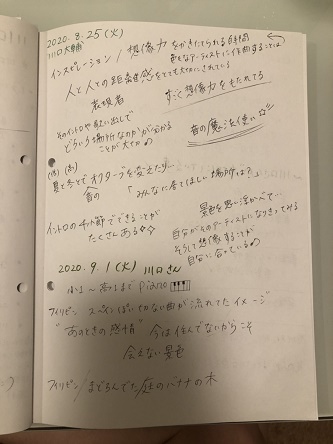 2020.8.25(火)
川口大輔
インスピレーション / 想像力をかきたてられる時間
色んなアーティストに作曲することは
人と人との距離感をとても大切にされてる
表現者
すごく想像力をもたれてる
そのイントロや歌い出しで
どういう場所なのかが分かる
ことが大切
音の魔法を使い
夏と冬とでオクターブを変えたり…
音の
「みんなに居てほしい場所は?」
イントロの4小節でできることが
たくさんある
景色を思い浮かべて…
自分がそのアーティストになりきってみる
そうして想像することが
自分に合っている
2020.9.1(火) 川口さん
小1〜高1まで piano
フィリピン スペインぽい切ない曲が流れてたイメージ
"あのときの感情" 今は住んでないからこそ
会えない景色
フィリピン / まどろんでた庭のバナナの木